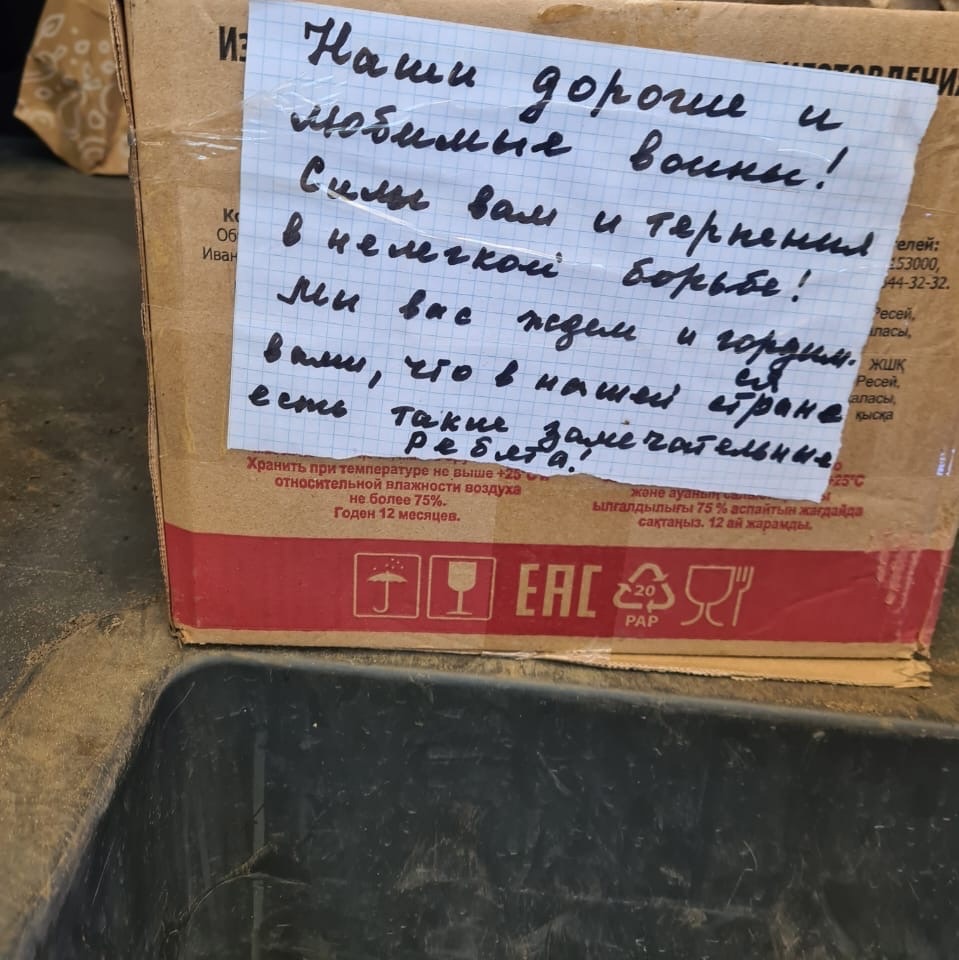 Из
ИЗГОТОВЛЕНИ
Наши дорогие и
любимые воины!
Силы вам и терпения
в нелегкой борьбе!
Мы вас ждем и гордим.
ся
вами, что в нашей стране
есть такие замечательные
ребята!
Ко
Об
Иван
телей:
153000,
44-32-32.
Ресей,
ласы,
ЖШҚ
Ресей,
аласы,
қысқа
Хранить при температуре не выше +25°С и
относительной влажности воздуха
не более 75%.
Годен 12 месяцев.
+25°С
және ауаның салыс
ылғалдылығы 75 % аспайтын жағдайда
сақтаңыз. 12 ай жарамды.
ЕАС
20
PAP